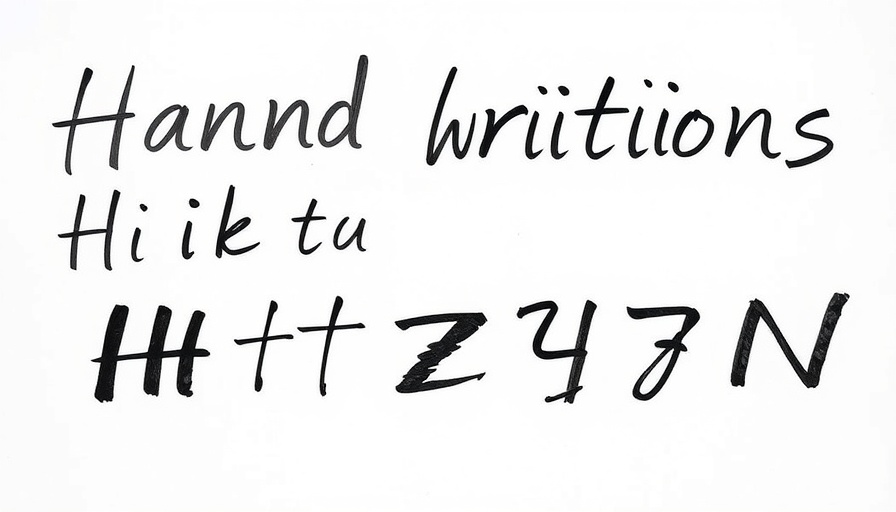 Hannd wriitiions
Hi ik tu
tt Z N